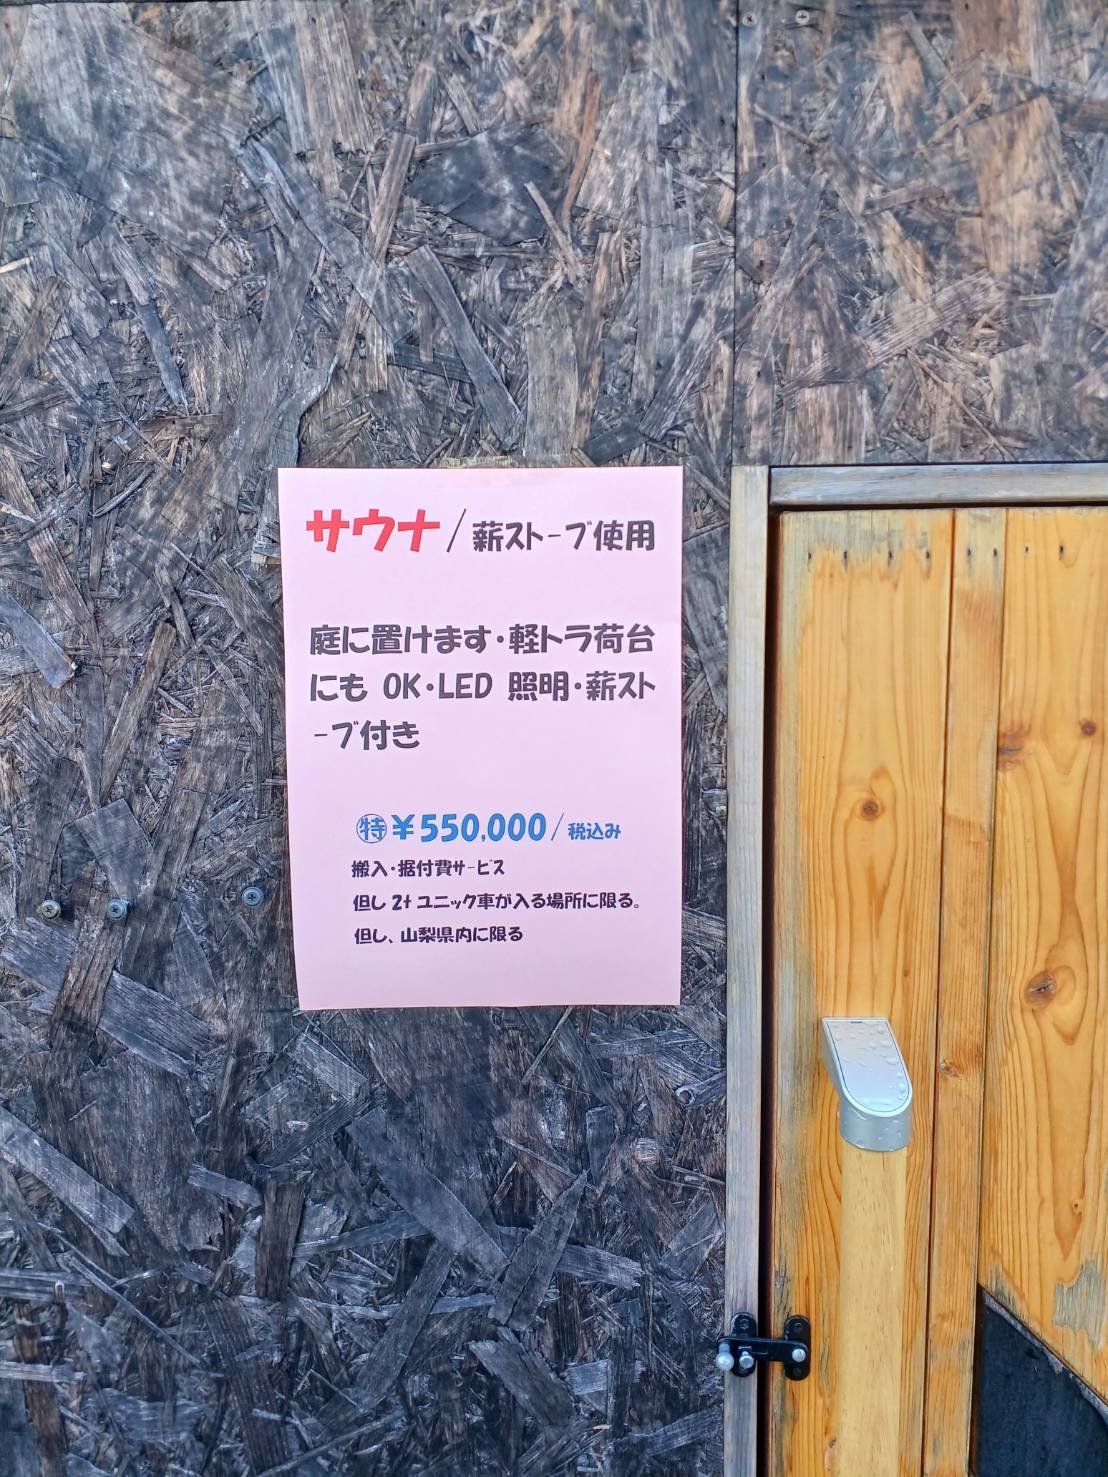 サウナ/薪ストーブ使用
庭に置けます・軽トラ荷台
にも OK・LED 照明・薪スト
ーブ付き
㊕¥550,000/税込み
搬入・据付費サービス
但し 2t ユニック車が入る場所に限る。
但し、山梨県内に限る